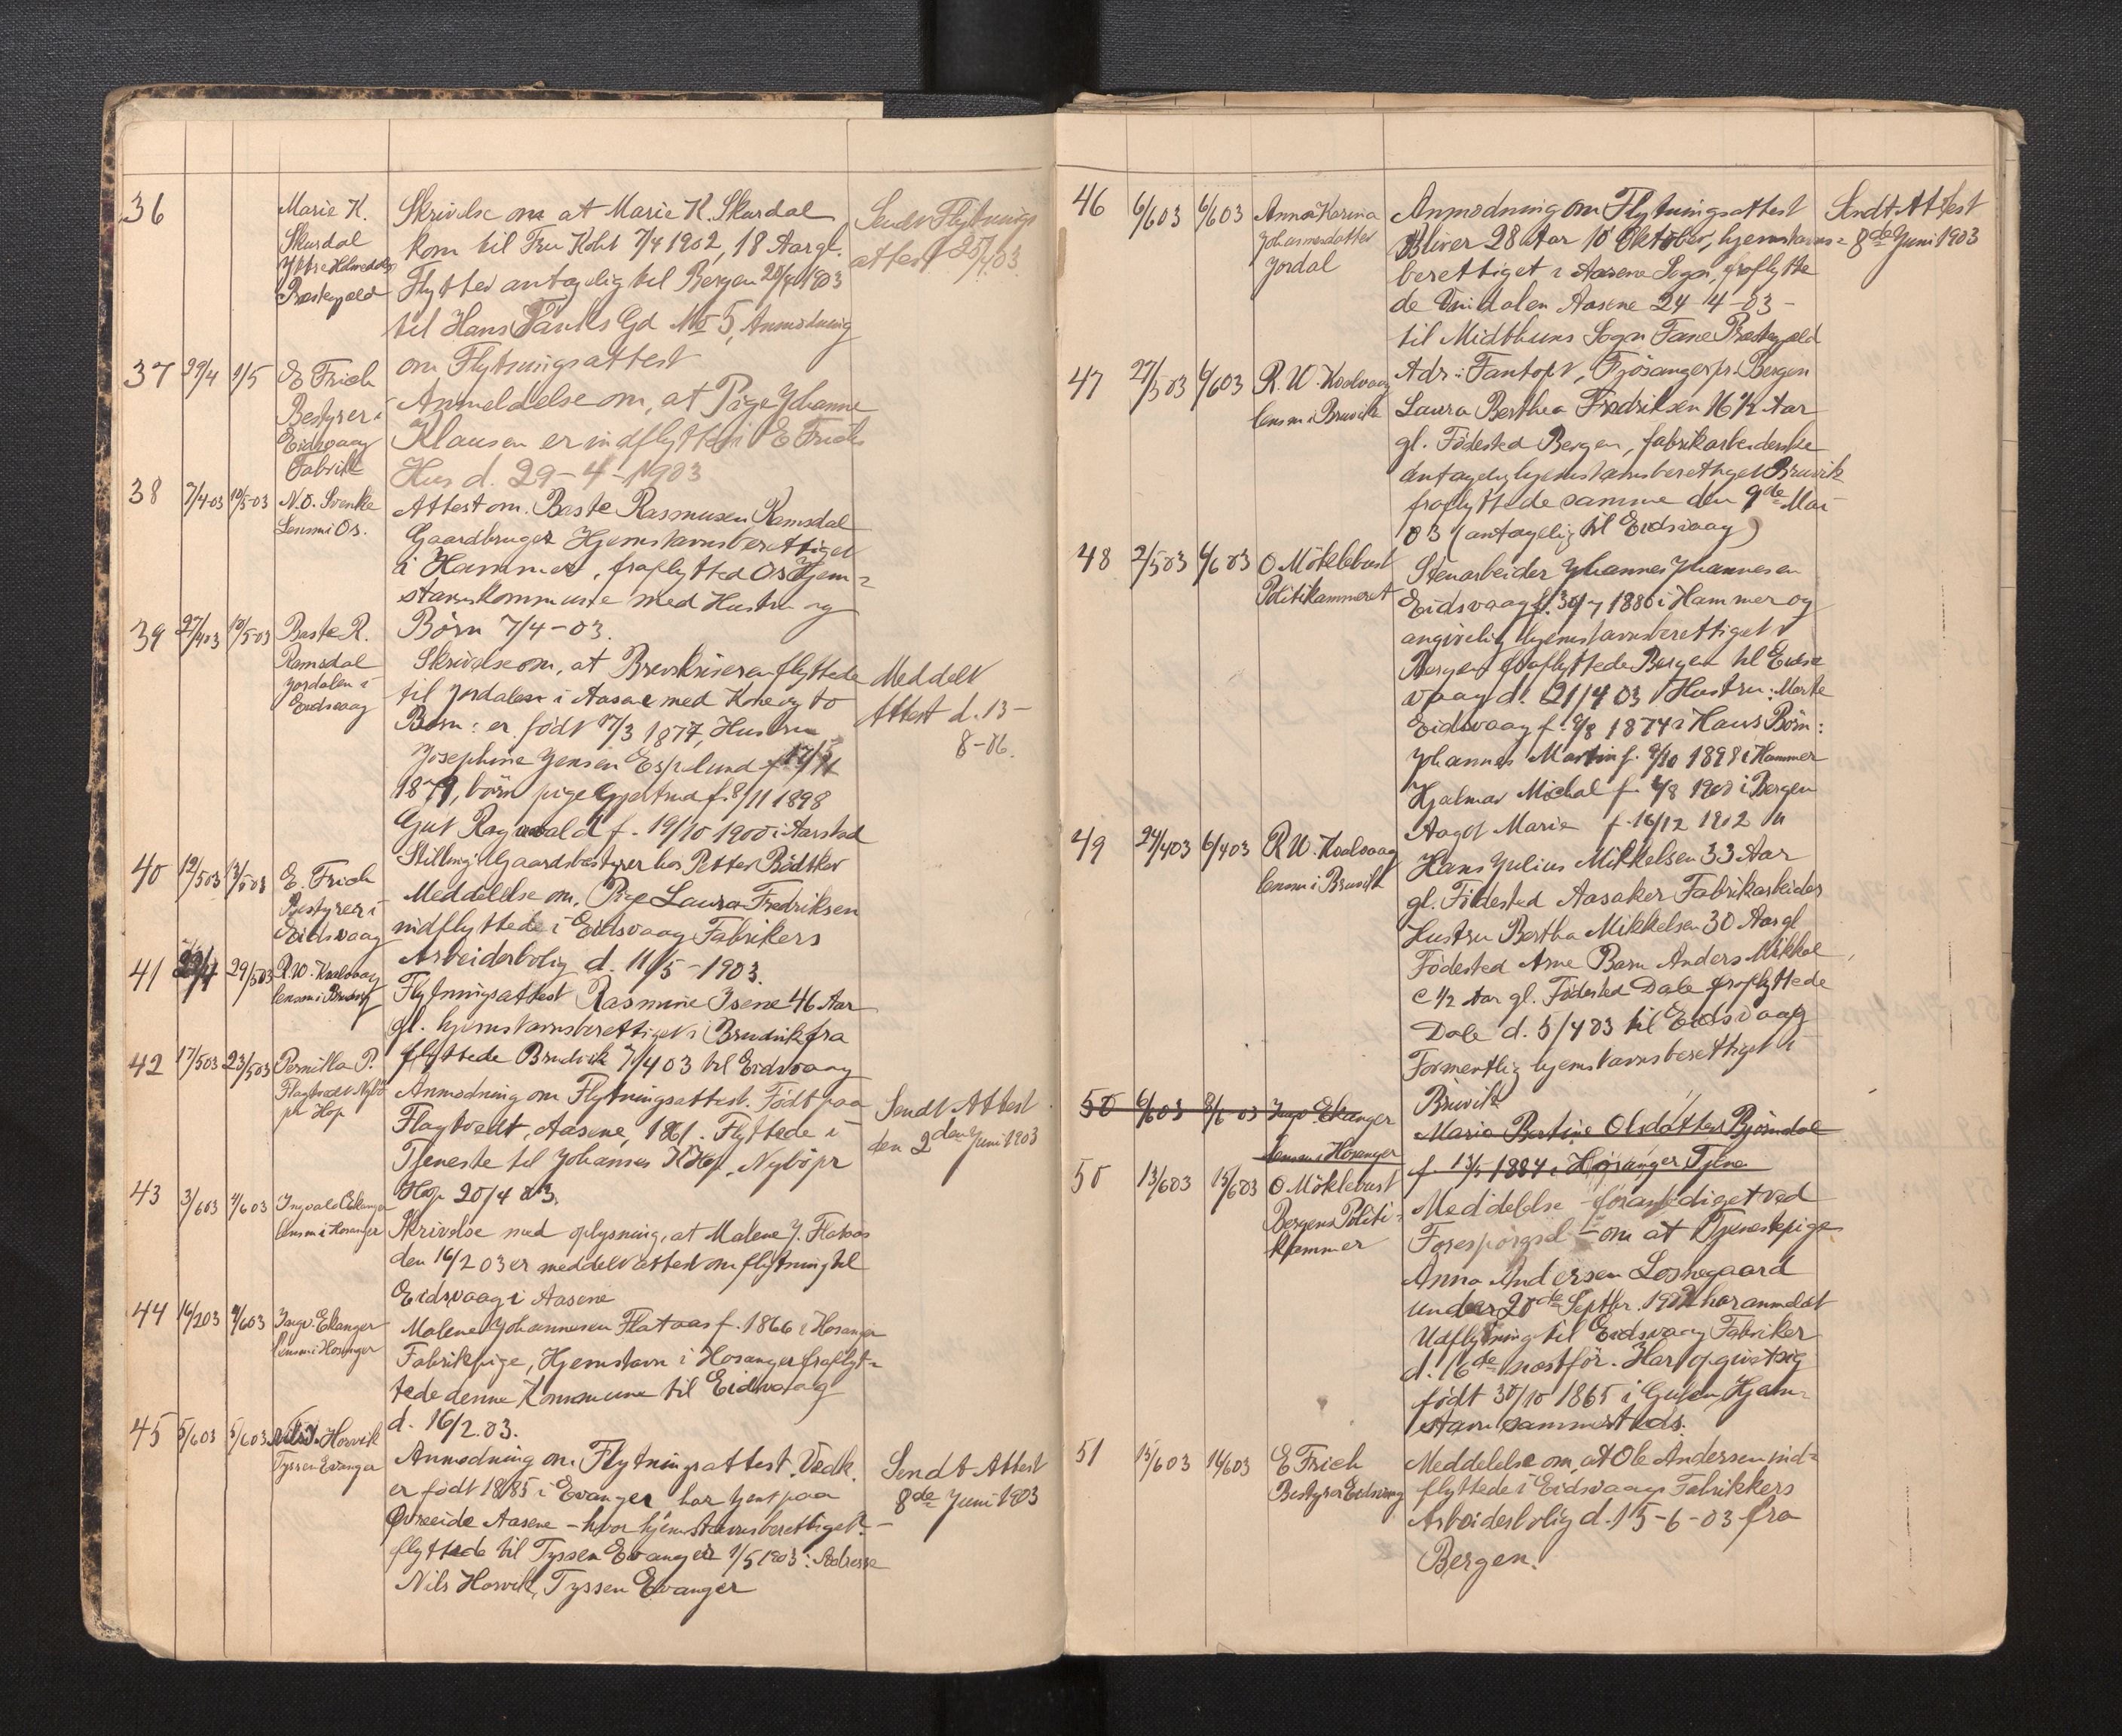 36
Marie K.
Skurdal
Præstegjeld
Skrivelse om at Marie K. Skurdal
kom til Fru Kohl 7/4 1902, 18 Aar gl.
Flytter antagelig til Bergen 20/4 1903
til Hans Tanks Gd No 5, Anmodning
om Flytningsattest
Sendt Flytnings
attest
37 29/4 1/5
E Frich
Bestyrer i
Eidsvaag
Fabrik
Anmeldelse om, at Pige Johanne
Klausen er indflyttet i E Frichs
Hus d. 29-4-1903
38 7/4 03 10/5 03
N. O. Svenke
Lensm i Os.
Attest om. Baste Rasmusen Ramsdal
Gaardbruger Hjemstavnsberettiget
i Hammer, fraflytted Os Hjem=
stavnskommune med Hustru og
Børn 7/4-03.
39 27/4 03 10/5 03
Baste R.
Ramsdal
Jordalen i
Eidsvaag
Skrivelse om, at Brevskriveren flyttede
til Jordalen i Aasane med Kone og to
Børn: er født 17/3 1877, Hustru
Josephine Jensen Esplund
1879, børn pige Gjertrud f. 8/11 1898
Gut Ragnvald f. 19/10 1900 i Aarstad
Stilling Gaardsbestyrer hos Petter Bødtker
Meddelt
Attest d. 13-
8-06.
40 12/5 03 13/5 03
E. Frich
Bestyrer i
Eidsvaag
Meddelelse om, Pige Laura Fredriksen
indflyttede i Eidsvaag Fabrikers
Arbeiderbolig d. 11/5-1903.
41 29/5 03
R. W. Kvalvaag
lensm i Bruvig
Flytningsattest Rasmine Isene 46 Aar
gl. hjemstavnsberettiget i Bruvik fra
flyttede Bruvik 7/4 03 til Eidsvaag
42 17/5 03 23/5 03
Pernilla P.
Flagtvedt Nybø
pr Hop
Anmodning om Flytningsattest. Født paa
Flagtvedt, Aasene, 1861. Flyttede i
Tjeneste til Johannes K Hop, Nybø pr
Hop 20/4 03.
Sendt Attest
den 2den Juni 1903
43 3/6 03 4/6 03
Ingvald Eknger
lensm i Hosanger
Skrivelse med oplysning, at Malene J. Flataas
den 16/2 03 er meddelt attest om flytning til
Eidsvaag i Aasene
44 16/2 03 4/6 03
Ingv. Ekanger
lensm i Hosanger
Malene Johannesen Flataas f. 1866 i Hosanger
Fabrikpige, Hjemstavn i Hosanger fraflyt=
tede denne Kommune til Eidsvaag
d. 16/2.03.
45 5/6 03 5/6 03
Nils Horvik
Tyssen Evanger
Anmodning om Flytningsattest. Vedk.
er født 1885 i Evanger, har tjent paa
Øvreeide Aasene - hvor hjemstavnsberettiget. -
flyttede til Tyssen Evanger 1/5 1903: Adresse
Nils Horvik, Tyssen Evanger
Sendt Attest
8de Juni 1903
46 6/6 03 6/6 03
Anna Karina
Johannesdatter
Jordal
Anmodning om Flytningsattest
Bliver 28 Aar 10 Oktober, hjemstavns=
berettiget i Aasene Sogn, fraflytte
de Aasene 24/4-03-
til Midthuns Sogn Fane Præstegjeld
Adr: Fantoft, Fjøsanger pr. Bergen
Sendt Attest
8de Juni 1903
47 27/5 03 6/6 03
R. W. Kvalvaag
lensm i Bruvik
Laura Berthea Fredriksen 16 1/2 Aar
gl. Fødested Bergen, fabrikarbeiderske
antagelig hjemstavnsberettiget Bruvik
fraflyttede samme den 9de Mai
03 (antagelig til Eidsvaag)
48 2/5 03 6/6 03
O Møklebust
Politikammeret
Stenarbeider Johannes Johannesen
Eidsvaag f. 30/7 1886 i Hammer og
angivelig hjemstavnsberettiget i
Bergen fraflyttede Bergen til Eids
vaag d. 21/4 03 Hustru: Marte
Eidsvaag f. 9/8 1874 i Haus Børn:
Johannes Martin f. 9/10 1898 i Hammer
Hjalmar Michal f. 4/8 1900 i Bergen
Aagot Marie f. 16/12 1902 "
49 24/4 03 6/4 03
R W. Kvalvaag
lensm i Bruvik
Hans Julius Mikkelsen 33 Aar
gl. Fødested Aasaker Fabrikarbeider
Hustru Bertha Mikkelsen 30 Aar gl
Fødested Arne Barn Anders Mikkel
1/2 Aar gl. Fødested Dale fraflyttede
Dale d. 5/4 03 til Eidsvaag
Formentlig hjemstavnsberettiget i
Bruvik
50 6/6 03 8/6 03
Ingv Ekanger
lensm i Hosanger
Maria Bertine Olsdatter Bjørndal
f. 13/5 1884 i Hosanger Tjene
50 13/6 03 15/6 03
O Møklebust
Bergens Politi=
kammer
Meddelelse - foranlediget ved
Forespørgsel - om at Tjenestepige
Anna Andersen Losnegaard
under 20de Septbr. 1902 har anmeldt
Udflytning til Eidsvaag Fabriker
d. 16de næstfør. Har opgivet sig
født 30/10 1865 i Gulen Hjem=
stavn sammesteds.
51 15/6 03 16/6 03
E Frich
Bestyrer Eidsvaag
Meddelelse om, at Ole Andersen ind=
flyttede i Eidsvaags Fabrikkers
Arbeiderbolig d. 15-6-03 fra
Bergen.